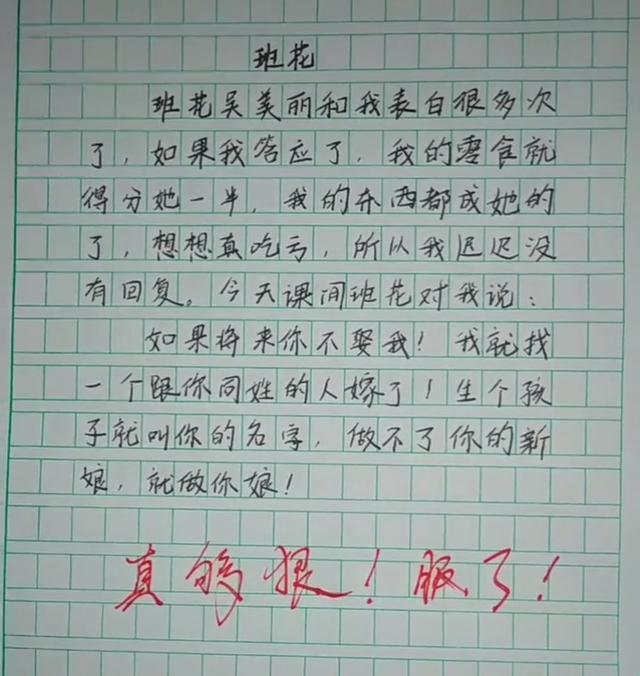 班花
班花吴美丽和我表白很多次
了，如果我答应了，我的零食就
得分她一半，我的东西都成她的
了，想想真吃亏，所以我迟迟没
有回复。今天课间班花对我说：
如果将来你不娶我！我就找
一个跟你同姓的人嫁了！生个孩
子就叫你的名字，做不了你的新
娘，就做你娘！
真够狠！服了！